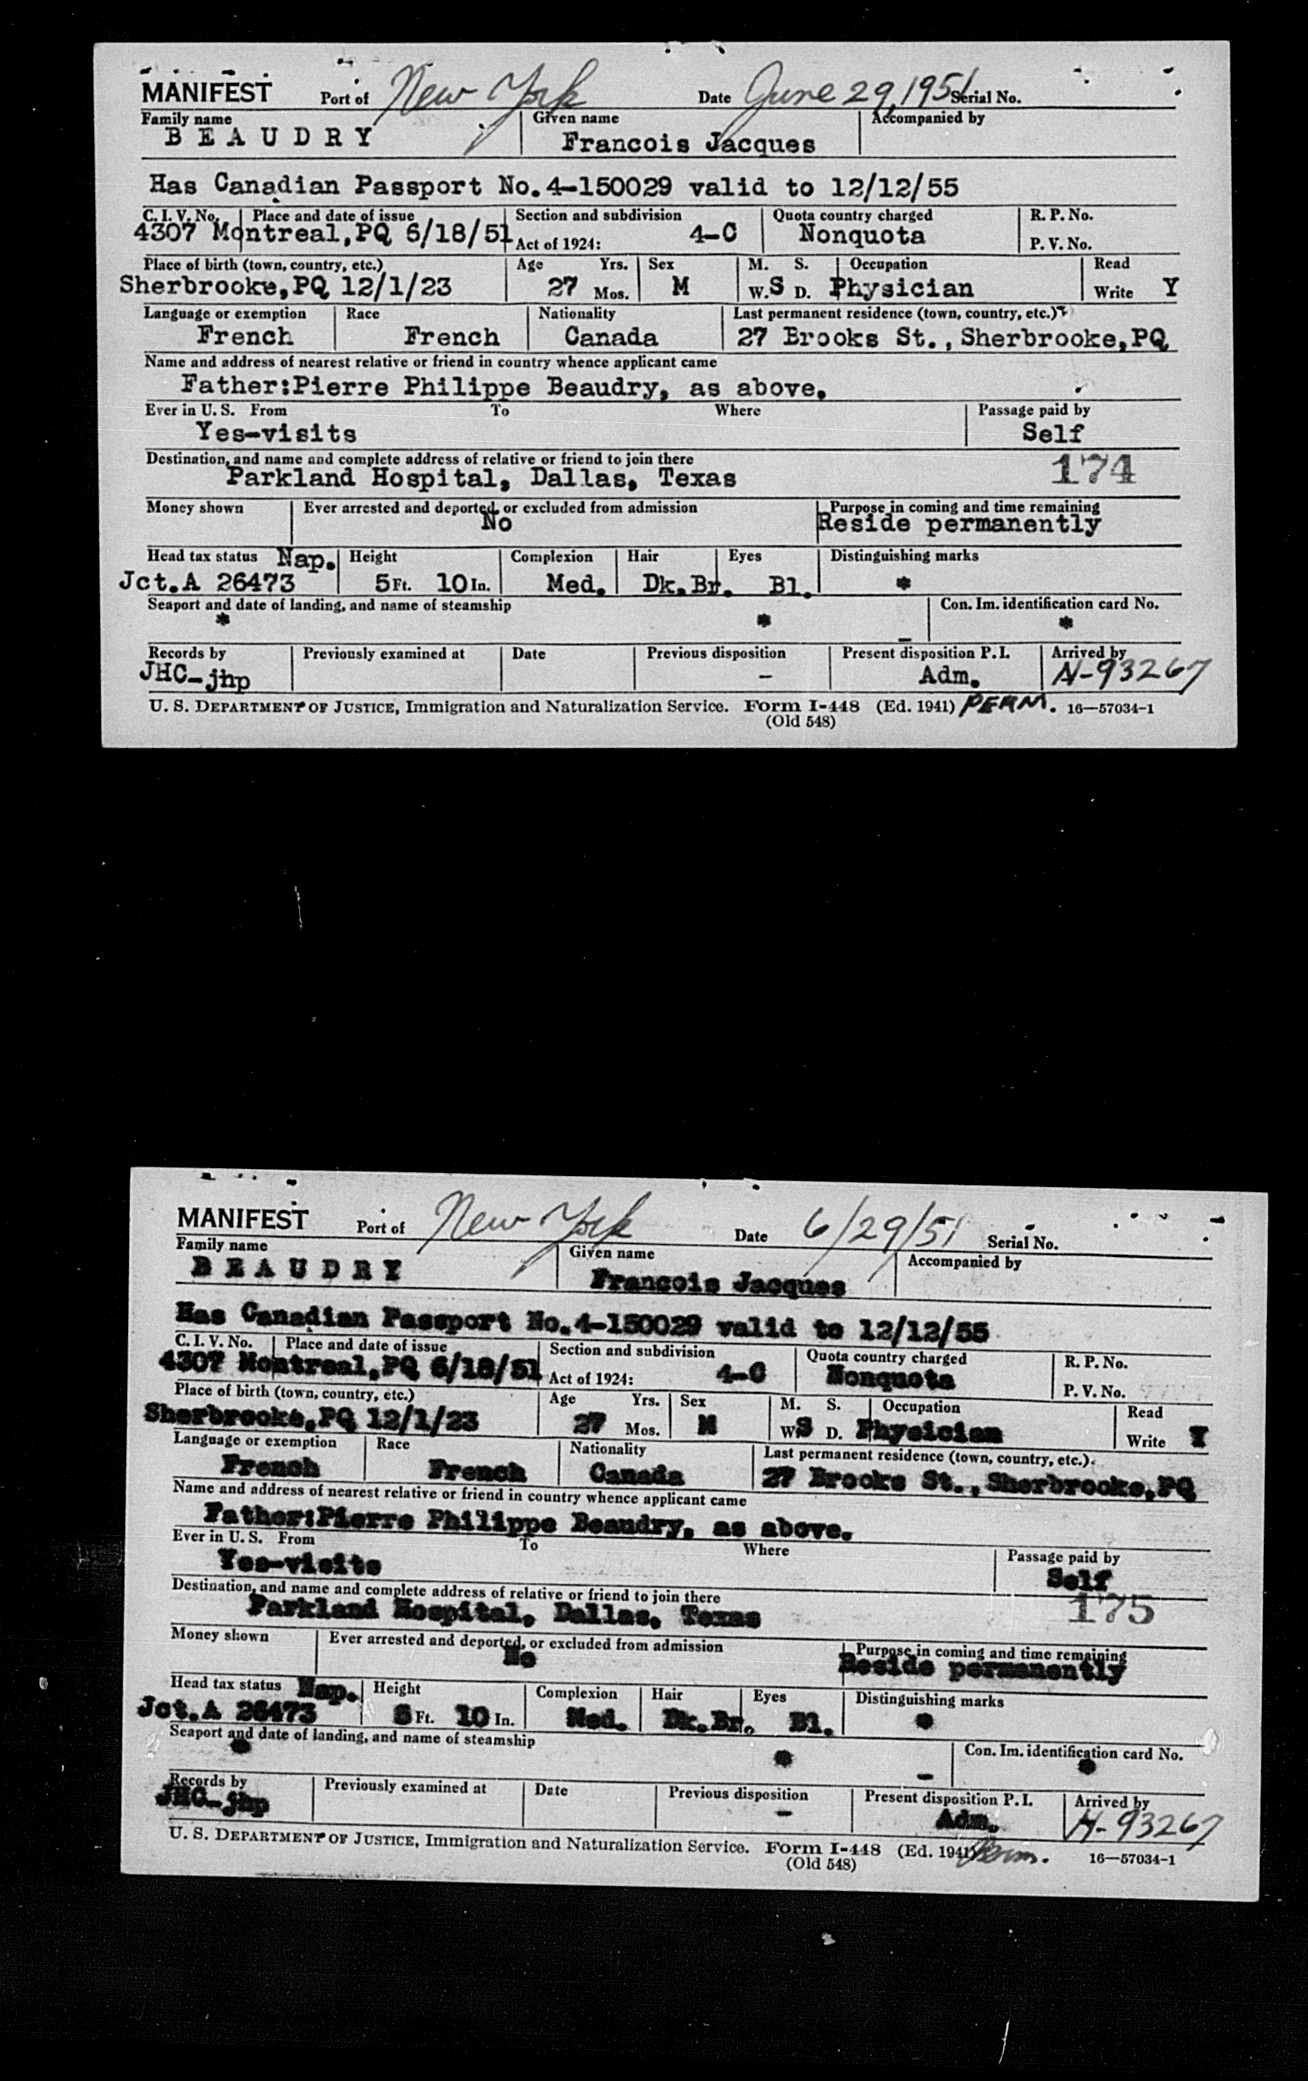 MANIFEST Port of New York Date June 29, 1951 Serial No.
Family name Given name Accompanied by
BEAUDRY Francois Jacques
Has Canadian Passport No.4-150029 valid to 12/12/55
C. I. V. No. Place and date of issue Section and subdivision Quota country charged R. P. No.
4307 Montreal,PQ 6/18/51 Act of 1924: 4-C Nonquota P. V. No.
Place of birth (town, country, etc.) Age Yrs. Sex M. S. Occupation Read
Sherbrooke,PQ 12/1/23 27 Mos. M W.S D. Physician Write Y
Language or exemption Race Nationality Last permanent residence (town, country, etc.)
French French Canada 27 Brooks St., Sherbrooke,PQ
Name and address of nearest relative or friend in country whence applicant came
Father:Pierre Philippe Beaudry, as above.
Ever in U. S. From To Where Passage paid by
Yes-visits Self
Destination, and name and complete address of relative or friend to join there
Parkland Hospital, Dallas, Texas 174
Money shown Ever arrested and deported, or excluded from admission Purpose in coming and time remaining
No Reside permanently
Head tax status Nap. Height Complexion Hair Eyes Distinguishing marks
Jct.A 26473 5 Ft. 10 In. Med. Dk.Br. Bl. *
Seaport and date of landing, and name of steamship Con. Im. identification card No.
* * - *
Records by Previously examined at Date Previous disposition Present disposition P. I. Arrived by
JHC-jhp - Adm. N-93267
U. S. DEPARTMENT OF JUSTICE, Immigration and Naturalization Service. Form I-448 (Ed. 1941) PERM. 16—57034-1
(Old 548)
MANIFEST Port of New York Date 6/29/51 Serial No.
Family name Given name Accompanied by
BEAUDRY Francois Jacques
Has Canadian Passport No.4-150029 valid to 12/12/55
C. I. V. No. Place and date of issue Section and subdivision Quota country charged R. P. No.
4307 Montreal,PQ 6/18/51 Act of 1924: 4-C Nonquota P. V. No.
Place of birth (town, country, etc.) Age Yrs. Sex M. S. Occupation Read
Sherbrooke,PQ 12/1/23 27 Mos. M W.S D. Physician Write Y
Language or exemption Race Nationality Last permanent residence (town, country, etc.)
French French Canada 27 Brooks St., Sherbrooke,PQ
Name and address of nearest relative or friend in country whence applicant came
Father:Pierre Philippe Beaudry, as above.
Ever in U. S. From To Where Passage paid by
Yes-visits Self
Destination, and name and complete address of relative or friend to join there
Parkland Hospital, Dallas, Texas 175
Money shown Ever arrested and deported, or excluded from admission Purpose in coming and time remaining
No Reside permanently
Head tax status Nap. Height Complexion Hair Eyes Distinguishing marks
Jct.A 26473 5 Ft. 10 In. Med. Dk.Br. Bl. *
Seaport and date of landing, and name of steamship Con. Im. identification card No.
* * - *
Records by Previously examined at Date Previous disposition Present disposition P. I. Arrived by
JHC-jhp - Adm. N-93267
U. S. DEPARTMENT OF JUSTICE, Immigration and Naturalization Service. Form I-448 (Ed. 1941) Perm. 16—57034-1
(Old 548)